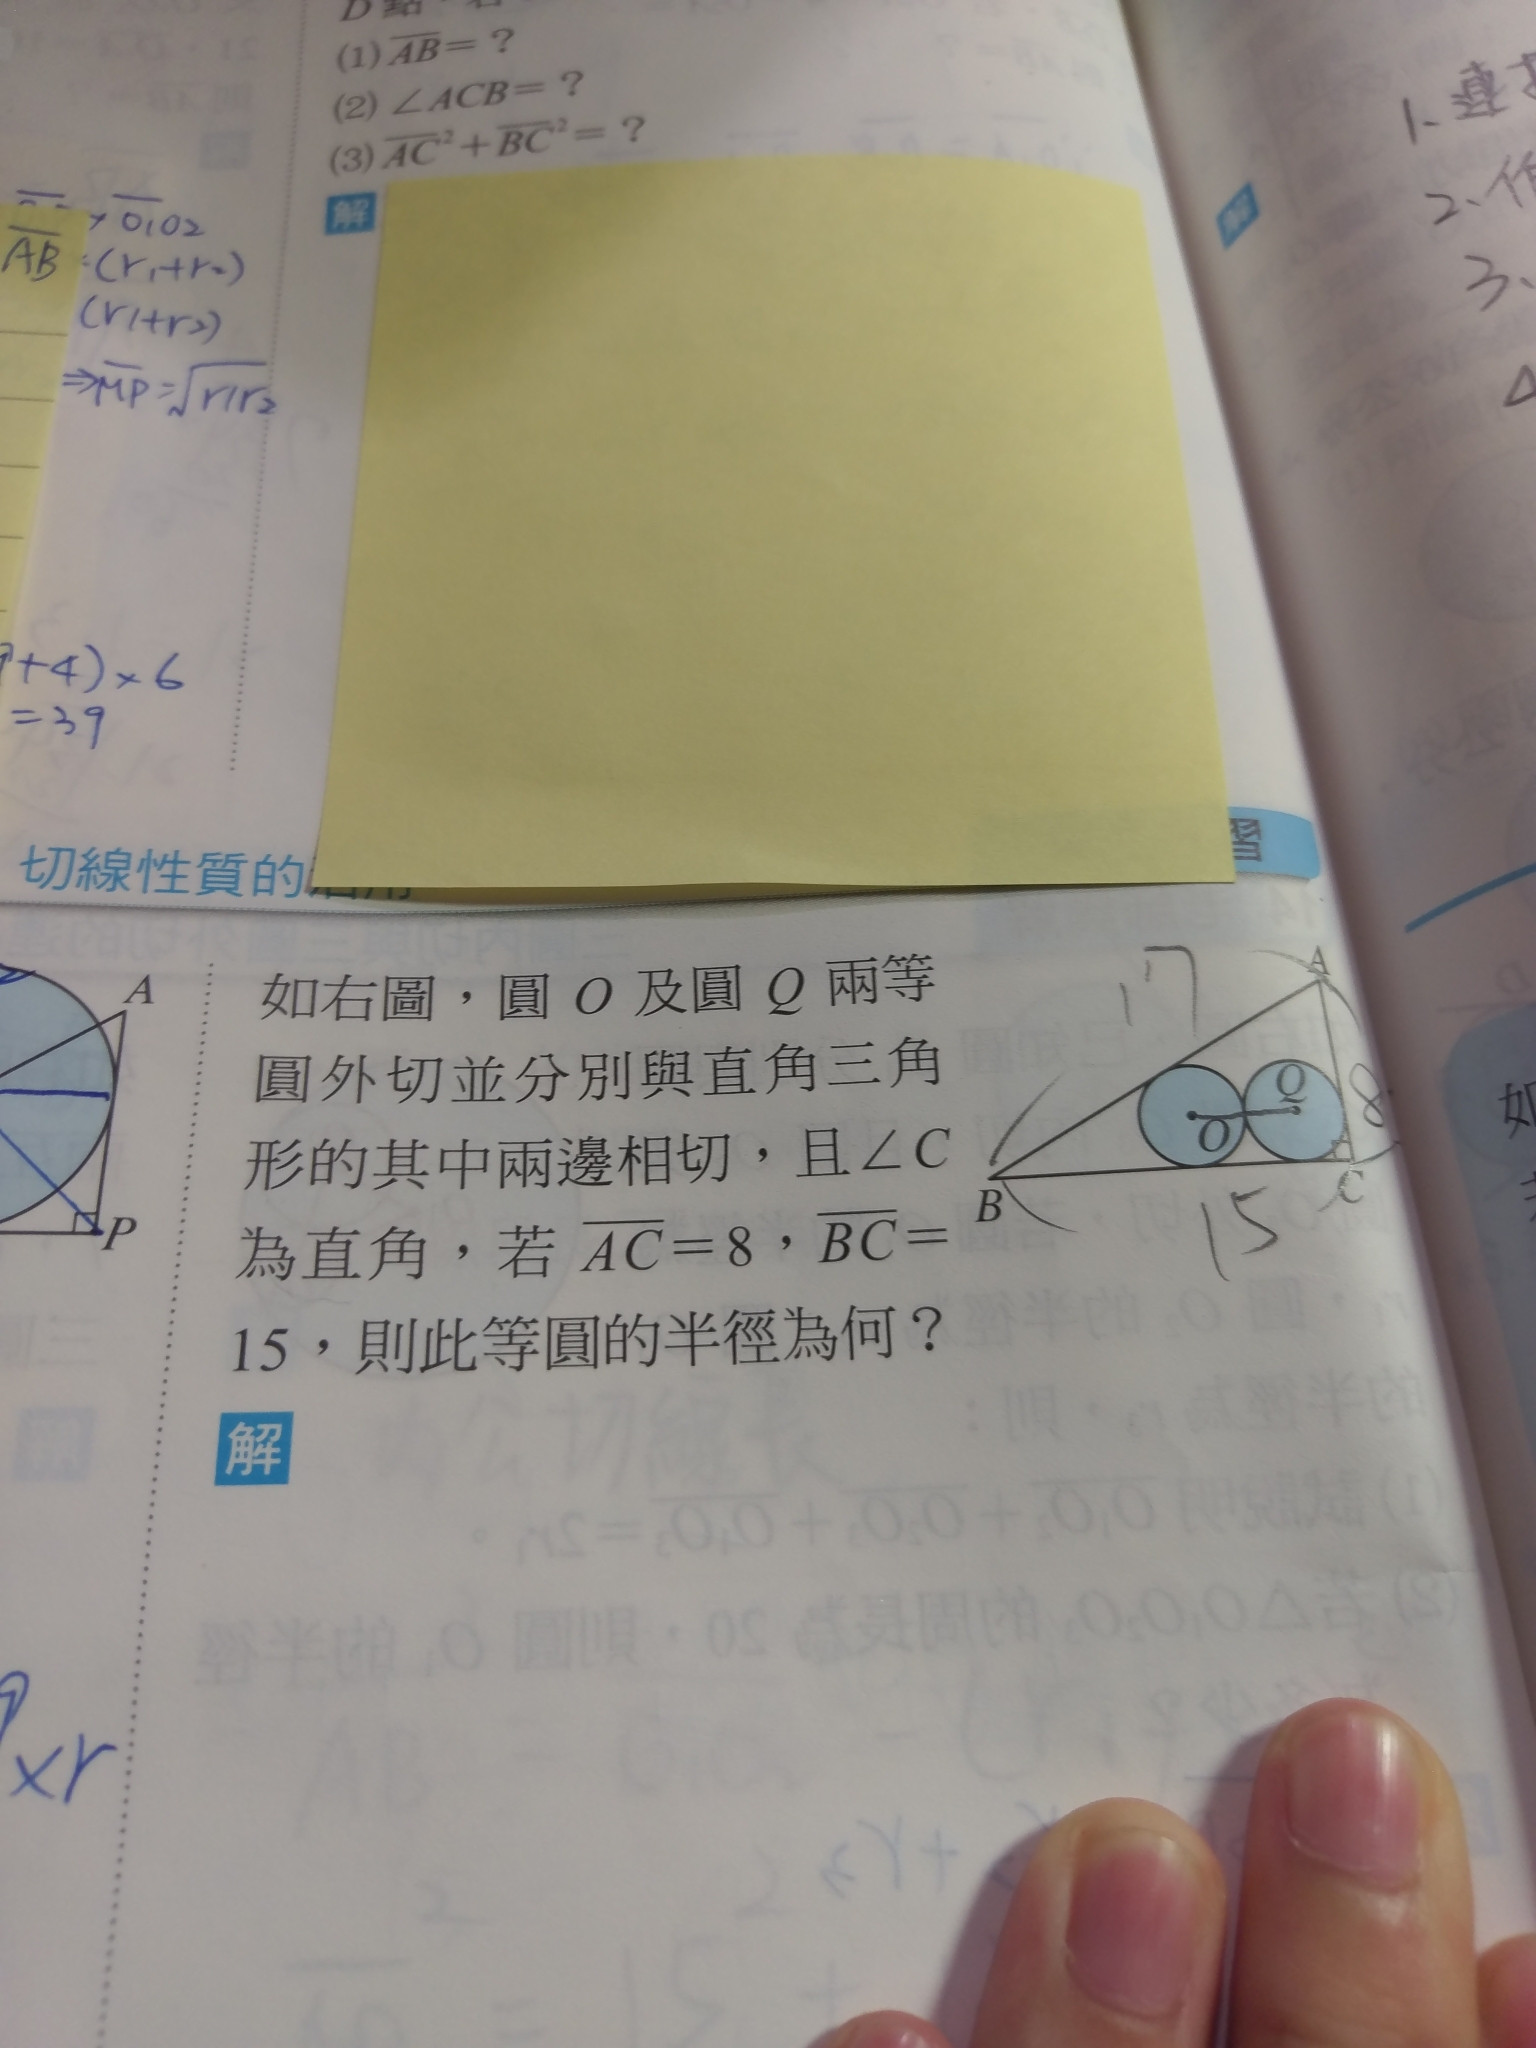 (1) AB=？
(2) ∠ACB=？
(3) AC²+BC²=？
解
O1O2
AB
(r1+r2)
(r1+r2)
⇒MP=√r1r2
+4)×6
=39
切線性質的
習
解
1、連
2、作
3、
A
P
如右圖，圓 O 及圓 Q 兩等
圓外切並分別與直角三角
形的其中兩邊相切，且∠C
為直角，若 AC=8，BC=
15，則此等圓的半徑為何？
17
A
Q
8
O
B
C
15
解
×r
如